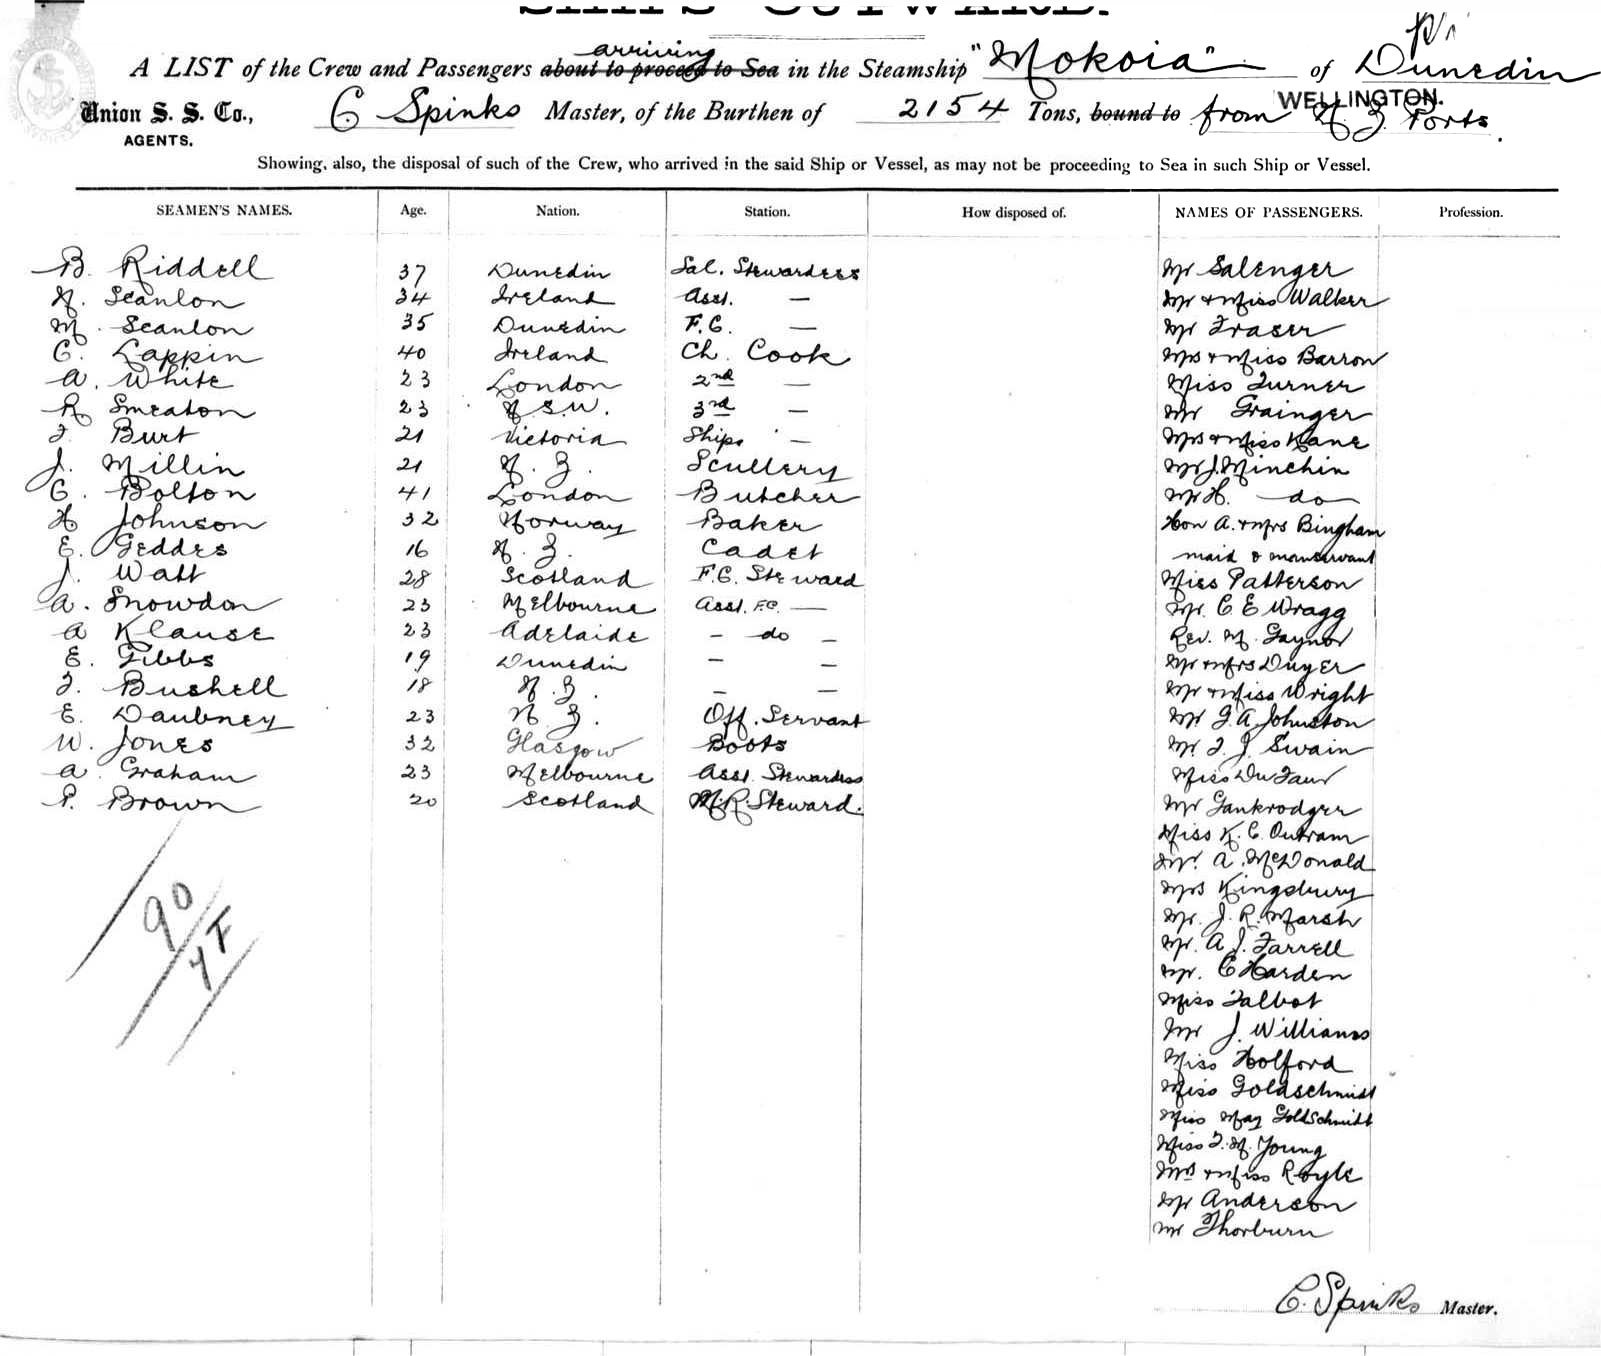 SHIPS OUTWARD.
A LIST of the Crew and Passengers about to proceed to Sea arriving in the Steamship "Mokoia" of Dunedin
WELLINGTON.
Union S. S. Co., C Spinks Master, of the Burthen of 2154 Tons, bound to from N. Z. Ports.
AGENTS.
Showing, also, the disposal of such of the Crew, who arrived in the said Ship or Vessel, as may not be proceeding to Sea in such Ship or Vessel.
SEAMEN'S NAMES. Age. Nation. Station. How disposed of. NAMES OF PASSENGERS. Profession.
B. Riddell 37 Dunedin Sal. Stewardess Mr Salenger
N. Scanlon 34 Ireland Asst. — Mr & Miss Walker
M. Scanlon 35 Dunedin F.C. — Mr Fraser
C. Lappin 40 Ireland Ch. Cook Mrs & Miss Barron
A. White 23 London 2nd — Miss Turner
R Smeaton 23 N.S.W. 3rd — Mr Grainger
F. Burt 21 Victoria Ships — Mrs & Miss Kane
J. Millin 21 N. Z. Scullery Mr J. Minchin
C. Bolton 41 London Butcher Mr H. do
H Johnson 32 Norway Baker Hon A. & Mrs Bingham
E. Geddes 16 N. Z. Cadet maid & manservant
J. Watt 28 Scotland F.C. Steward Miss Patterson
A. Snowdon 23 Melbourne Asst. F.C. — Mr. C E Wragg
A Klause 23 Adelaide — do — Rev. M. Gaynor
E. Gibbs 19 Dunedin — — Mr & Mrs Dwyer
F. Bushell 18 N. Z. — — Mr & Miss Wright
E. Daubney 23 N. Z. Off. Servant Mr G. A. Johnston
W. Jones 32 Glasgow Boots Mr. F. J. Swain
A. Graham 23 Melbourne Asst. Stewardess Miss Du Faur
P. Brown 20 Scotland M.R. Steward. Mr Gankrodger
Miss K. C. Outram
Mr. A. McDonald
Mrs Kingsbury
Mr. J. R. Marsh
Mr. A. J. Farrell
Mr. C Harden
Miss Talbot
Mr J. Williams
Miss Holford
Miss Goldschmidt
Miss May Goldschmidt
Miss F. M. Young
Mrs & Miss Royle
Mr Anderson
Mr Thorburn
90
C. Spinks Master.